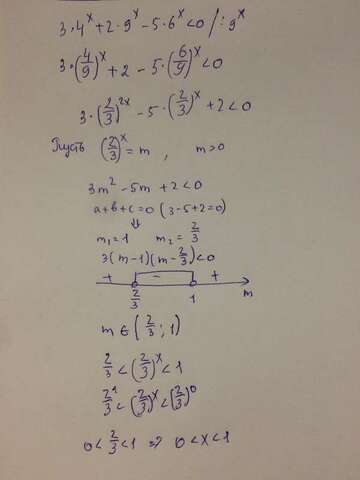 3·4^x+2·9^x-5·6^x<0 /:9^x
3·(4/9)^x+2-5·(6/9)^x<0
3·(2/3)^2x-5·(2/3)^x+2<0
Пусть (2/3)^x=m, m>0
3m²-5m+2<0
a+b+c=0 (3-5+2=0)
⇓
m₁=1 m₂=2/3
3(m-1)(m-2/3)<0
+ - +
2/3 1 m
m∈(2/3;1)
2/3<(2/3)^x<1
2/3^1<(2/3)^x<(2/3)^0
0<2/3<1 => 0<x<1